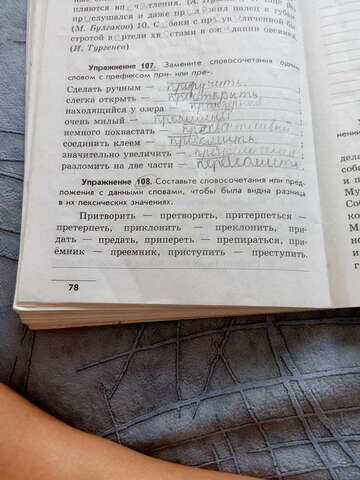 пляются вп_ч_тления. (А.
прослушался и даже пр_л_жил палец к губам.
(М. Булгаков) 10. Собаки с пр_ув_личенной бы-
стротой вертели хв_стами в ож_дании овсянки.
(И. Тургенев)
Упражнение 107. Замените словосочетания одним
словом с префиксом при- или пре-.
Сделать ручным — приручить
слегка открыть — приоткрыть
находящийся у озера — приозёрный
очень милый —
немного похвастать —
соединить клеем — приклеить
значительно увеличить —
разломить на две части — переломить
Упражнение 108. Составьте словосочетания или пред-
ложения с данными словами, чтобы была видна разница
в их лексических значениях.
Притворить — претворить, притерпеться —
претерпеть, приклонить — преклонить, при-
дать — предать, припереть — препираться, при-
ёмник — преемник, приступить — преступить.
78